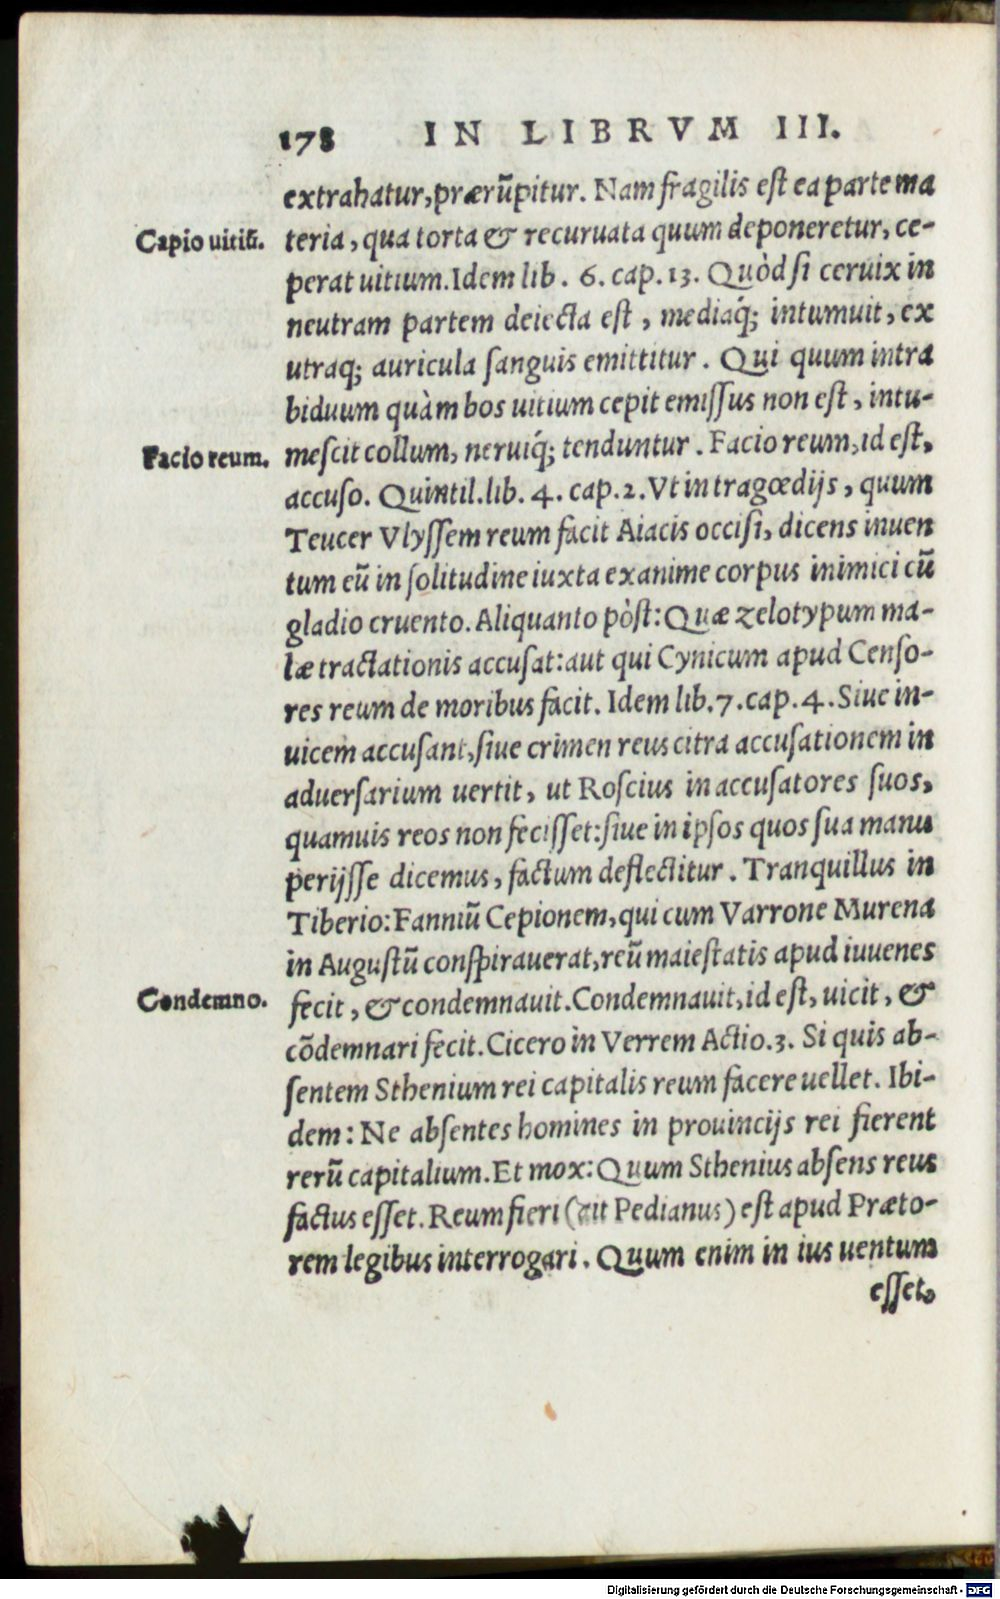 178 IN LIBRVM III.
extrahatur, prærũpitur. Nam fragilis est ea parte ma
Capio uitiũ. teria, qua torta & recuruata quum deponeretur, ce-
perat uitium. Idem lib. 6. cap. 13. Quòd si ceruix in
neutram partem deiecta est, mediaq́; intumuit, ex
utraq; auricula sanguis emittitur. Qui quum intra
biduum quàm bos uitium cepit emissus non est, intu-
Facio reum. mescit collum, neruiq́; tenduntur. Facio reum, id est,
accuso. Quintil. lib. 4. cap. 2. Vt in tragœdijs, quum
Teucer Vlyssem reum facit Aiacis occisi, dicens inuen
tum eũ in solitudine iuxta exanime corpus inimici cũ
gladio cruento. Aliquanto pòst: Quæ zelotypum ma-
læ tractationis accusat: aut qui Cynicum apud Censo-
res reum de moribus facit. Idem lib. 7. cap. 4. Siue in-
uicem accusant, siue crimen reus citra accusationem in
aduersarium uertit, ut Roscius in accusatores suos,
quamuis reos non fecisset: siue in ipsos quos sua manu
perijsse dicemus, factum deflectitur. Tranquillus in
Tiberio: Fanniũ Cepionem, qui cum Varrone Murena
in Augustũ conspirauerat, reũ maiestatis apud iuuenes
Condemno. fecit, & condemnauit. Condemnauit, id est, uicit, &
cõdemnari fecit. Cicero in Verrem Actio. 3. Si quis ab-
sentem Sthenium rei capitalis reum facere uellet. Ibi-
dem: Ne absentes homines in prouincijs rei fierent
rerũ capitalium. Et mox: Quum Sthenius absens reus
factus esset. Reum fieri (ait Pedianus) est apud Præto-
rem legibus interrogari. Quum enim in ius uentum
esset,
Digitalisierung gefördert durch die Deutsche Forschungsgemeinschaft - DFG